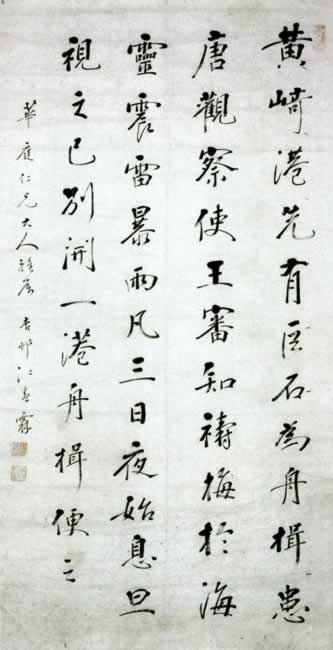 黃崎港先有巨石為舟楫患
唐觀察使王審知禱梅於海
靈震雷暴雨凡三日夜始息旦
視之已別開一港舟楫便之
華庭仁兄大人雅屬 杏邨江春霖